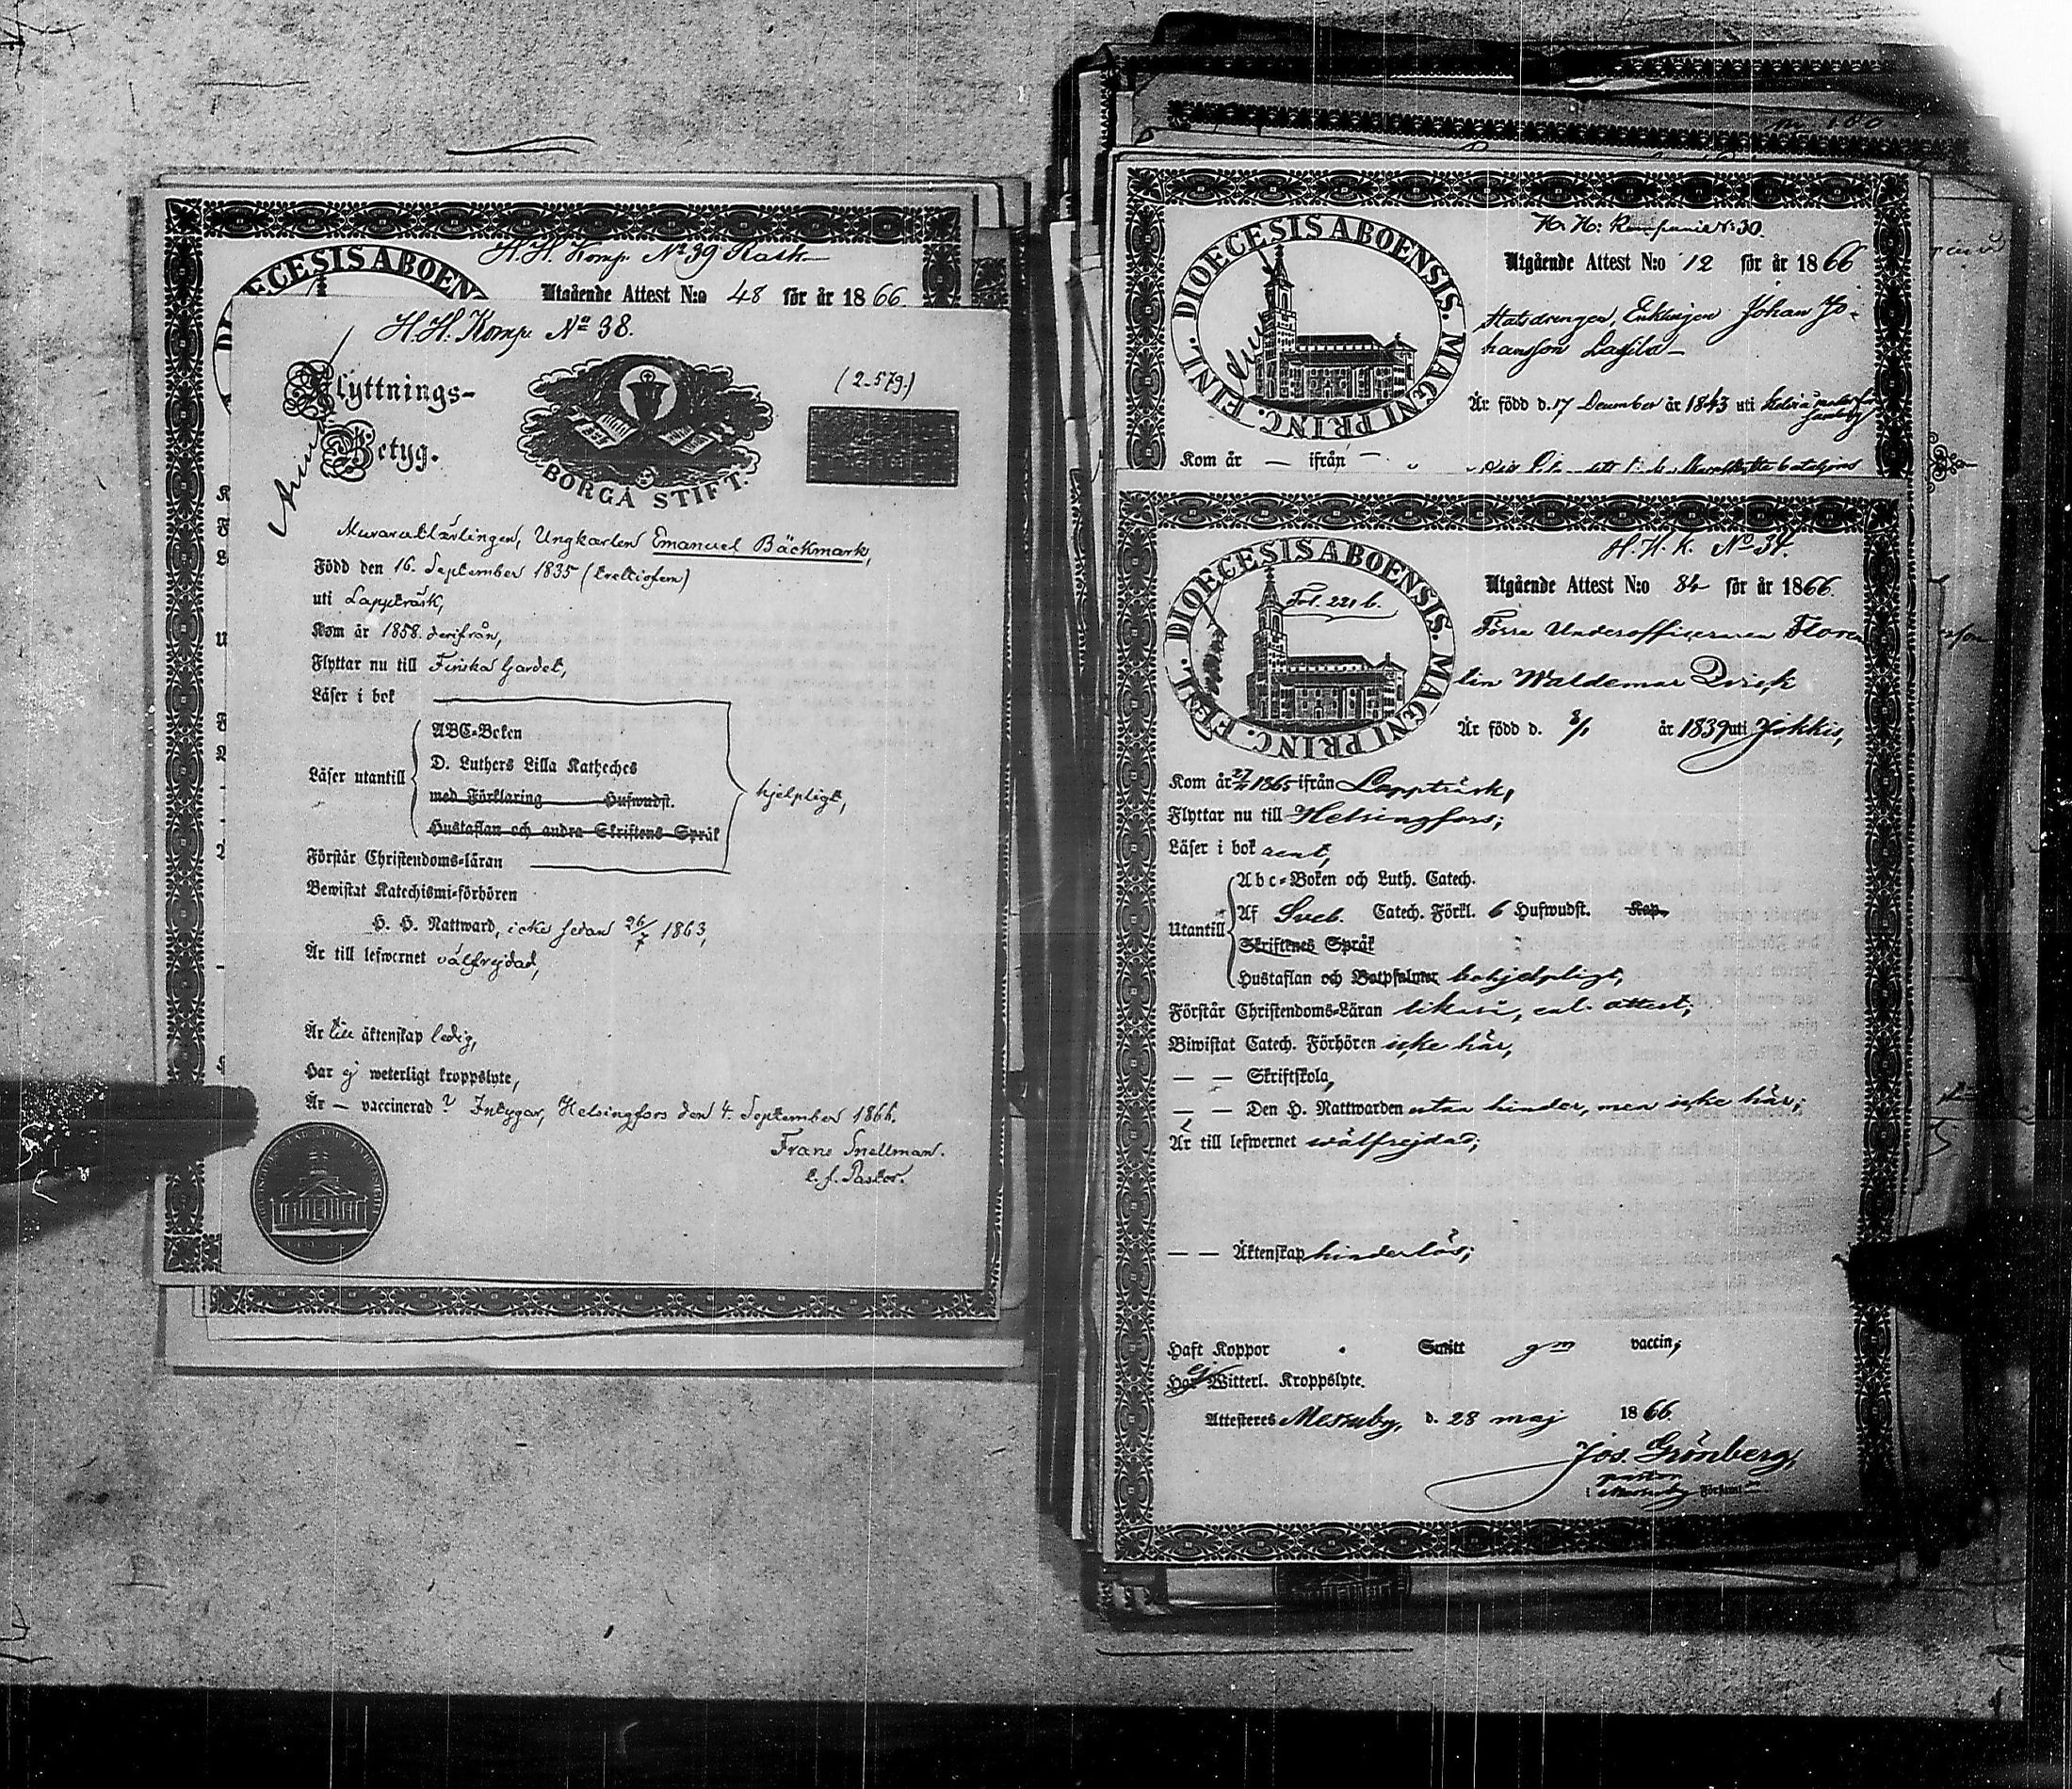 H. H. Komp. No 39 Rask
DIOECESIS ABOEN
Utgående Attest N:o 48 för år 1866.
H. H. Komp. No 38.
Flyttnings-
Betyg.
BORGÅ STIFT.
(2-579.)
Ungkarlen Emanuel Bäckmark,
Född den 16. September 1835 (trettiofem)
uti Lappträsk,
Kom år 1858. derifrån,
Flyttar nu till Finska Gardet,
Läser i bok
Läser utantill
ABC-Boken
D. Luthers Lilla Katheches
med Förklaring Hufwudst.
Hustaflan och andra Skriftens Språk
hjelpligt,
Förstår Christendoms-läran
Bewistat Katechismi-förhören
H. H. Nattward, icke sedan 26/7 1863,
Är till lefwernet välfrejdad,
Är till äktenskap ledig,
Har ej weterligt kroppslyte,
Är — vaccinerad? Intygar, Helsingfors den 4. September 1866.
Frans Snellman.
t. f. Pastor.
No 100
H. H. Kompanie No 30.
DIOECESIS ABOENSIS. MAGNI PRINC. FINL.
Utgående Attest N:o 12 för år 1866
Statsdrengen, Enklingen Johan Jo-
hansson
Är född d. 17 December år 1843 uti
Kom år — ifrån —
H. H. K. No 34.
DIOECESIS ABOENSIS. MAGNI PRINC. FINL.
Fol. 221 b.
Utgående Attest N:o 84 för år 1866.
Förra Underofficeraren Floren
tin Waldemar Qvick
Är född d. 8/1 år 1839 uti Jokkis,
Kom år 1865 ifrån Lappträsk,
Flyttar nu till Helsingfors;
Läser i bok rent,
Utantill
Abc-Boken och Luth. Catech.
Af Sveb. Catech. Förkl. 6 Hufwudst. Kap.
Skriftenes Språk
Hustaflan och Botpsalmer behjelpligt,
Förstår Christendoms-Läran likaså, enl. attest;
Biwistat Catech. Förhören icke här,
— — Skriftskola,
— — Den H. Nattwarden utan hinder, men icke här;
Är till lefwernet wälfrejdad;
— — Äktenskap hinderlös;
Haft Koppor Smitt gm vaccin;
Har ej Witterl. Kroppslyte.
Attesteres Messuby, d. 28 maj 1866.
Jos. Grönberg,
pastor
i Messuby Församl